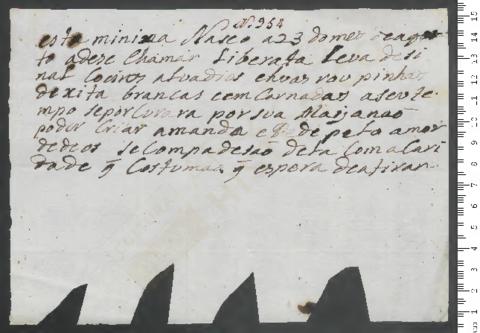 N. 954
esta minina Nasco a 23 do mes de agos
to adese Chamar Liberata Leva de si
nal Coeiros alvadios e huas rou pinhas
de xita brancas e em Carnadas a seu te
mpo se porCurara por sua Mai naõ
poder Criar a manda e q̃ pelo amor
de deos se Compadesaõ dela Com a Cari
dade q̃ Costumaõ q̃ espera de a tirar